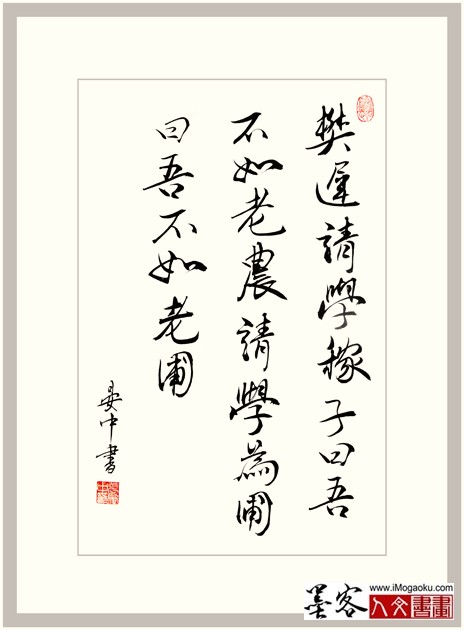 樊遲請學稼子曰吾
不如老農請學為圃
曰吾不如老圃
晏中書
墨客
www.iMogaoku.com
人文書畫